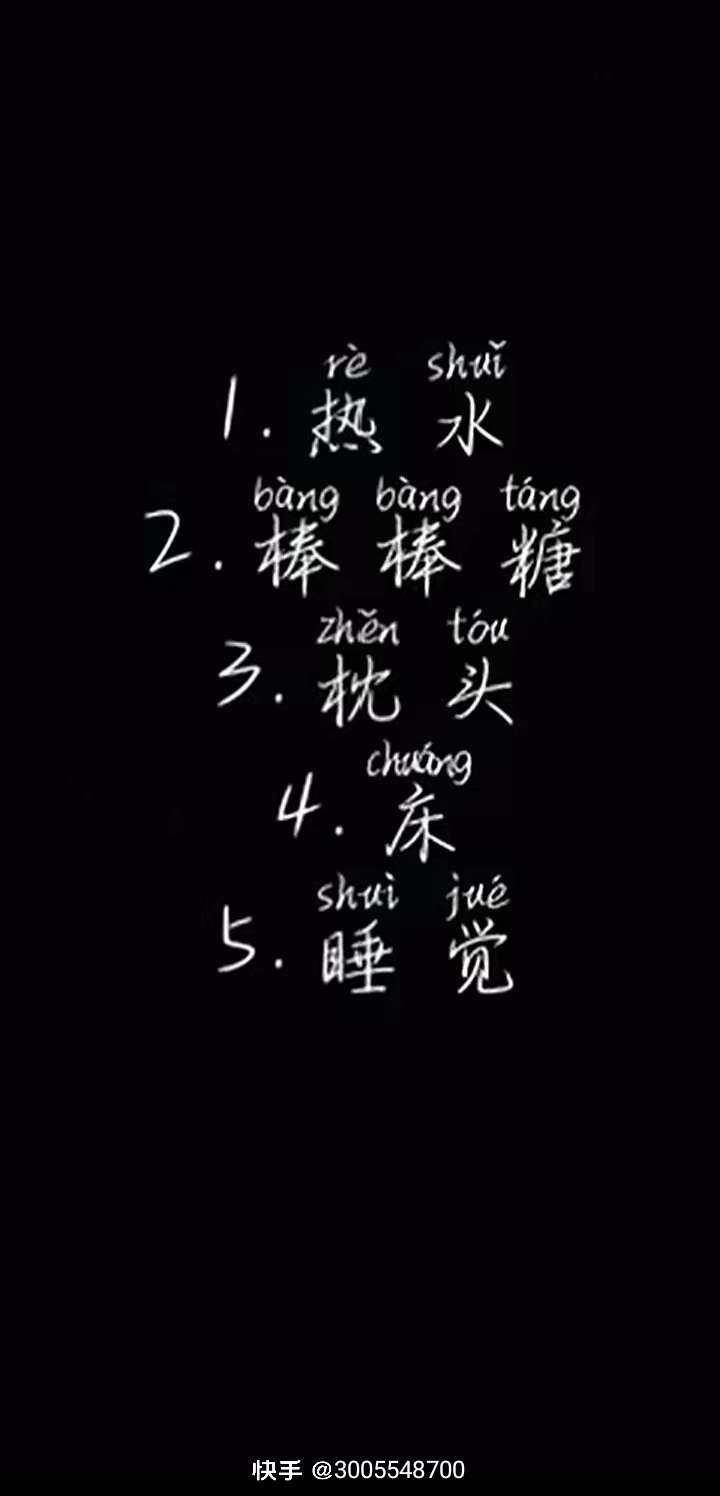 rè shuǐ
1. 热水
bàng bàng táng
2. 棒棒糖
zhěn tóu
3. 枕头
chuáng
4. 床
shuì jué
5. 睡觉
快手 @3005548700